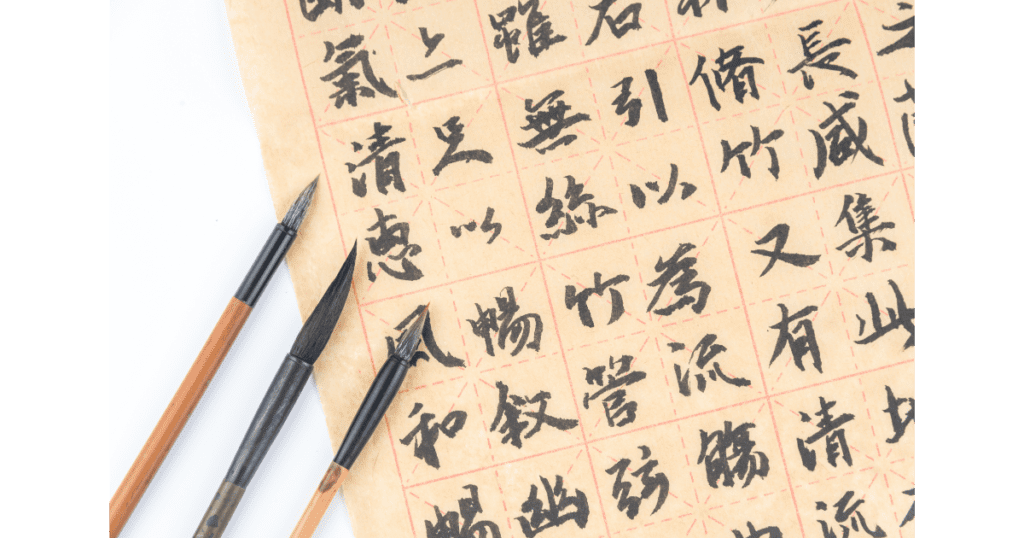 長咸集此
脩竹又有清流
右引以為流觴
雖無絲竹管弦
足以暢叙幽
氣清惠風和暢